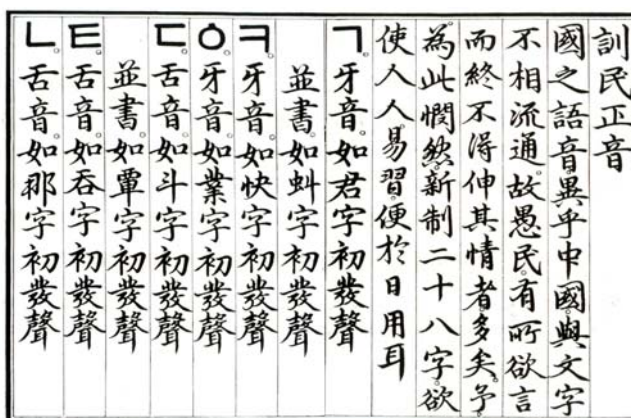 訓民正音
國之語音。異乎中國。與文字
不相流通。故愚民。有所欲言
而終不得伸其情者。多矣。予。
為此憫然。新制二十八字。欲
使人人。易習。便於日用耳
ㄱ。牙音。如君字初發聲
並書。如虯字初發聲
ㅋ。牙音。如快字初發聲
ㆁ。牙音。如業字初發聲
ㄷ。舌音。如斗字初發聲
並書。如覃字初發聲
ㅌ。舌音。如呑字初發聲
ㄴ。舌音。如那字初發聲